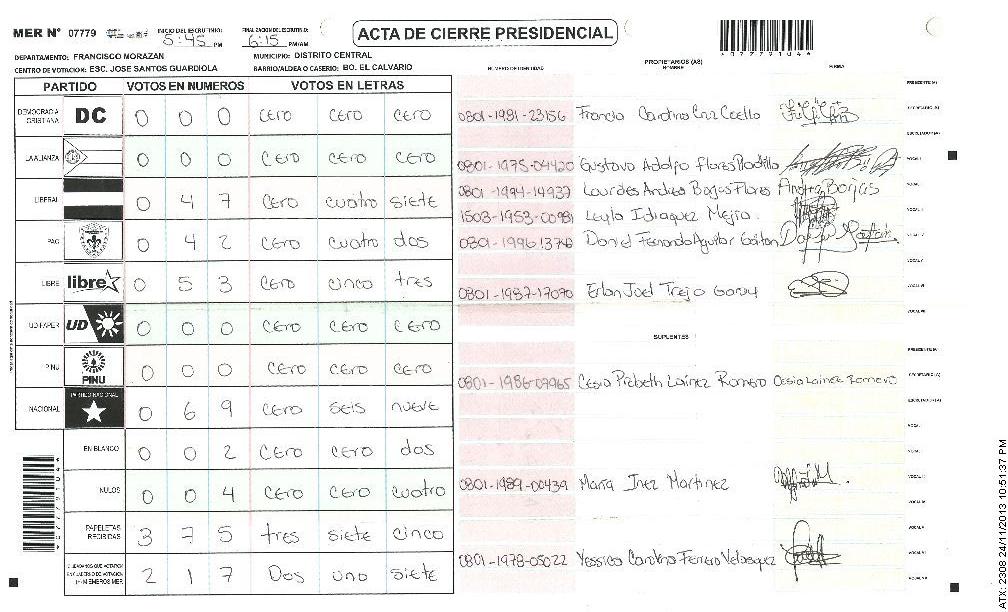 MER N° 07779 INICIO DEL ESCRUTINIO: 5:45 PM FINALIZACION DEL ESCRUTINIO: 6:15 PM/AM ACTA DE CIERRE PRESIDENCIAL
DEPARTAMENTO: FRANCISCO MORAZAN MUNICIPIO: DISTRITO CENTRAL
CENTRO DE VOTACION: ESC. JOSE SANTOS GUARDIOLA BARRIO/ALDEA O CASERIO: BO. EL CALVARIO
NUMERO DE IDENTIDAD PROPIETARIOS (AS) NOMBRE FIRMA
PARTIDO VOTOS EN NUMEROS VOTOS EN LETRAS
DEMOCRACIA CRISTIANA DC 0 0 0 CERO CERO CERO
LA ALIANZA 0 0 0 CERO CERO CERO
LIBERAL 0 4 7 CERO cuatro siete
PAC 0 4 2 CERO cuatro dos
LIBRE libre 0 5 3 CERO cinco tres
UD-FAPER UD 0 0 0 CERO CERO CERO
PINU PINU 0 0 0 CERO CERO CERO
NACIONAL PARTIDO NACIONAL 0 6 9 CERO SEIS nueve
EN BLANCO 0 0 2 CERO CERO dos
NULOS 0 0 4 CERO CERO cuatro
PAPELETAS RECIBIDAS 3 7 5 tres siete cinco
2 1 7 Dos uno siete
PRESIDENTE (A)
SECRETARIO (A)
0801-1981-23156
ESCRUTADOR (A)
0801-1975-04420 Gustavo Adolfo Flores
0801-1994-14937 Lourdes Andrea Borjas Flores Andrea Borjas
1503-1953-00981 Leyla Idiaquez Mejia
Daniel Fernando Aguilar
0801-1987-17070 Joel Trejo
SUPLENTES
PRESIDENTE (A)
SECRETARIO (A)
0801-1986-07965 Lainez Romero Cesia Lainez Romero
ESCRUTADOR (A)
0801-1989-00439 Maria Inez Martinez
0801-1978-05022 Yessica Carolina Ferrera Velasquez
ATX: 2308 24/11/2013 10:51:37 PM